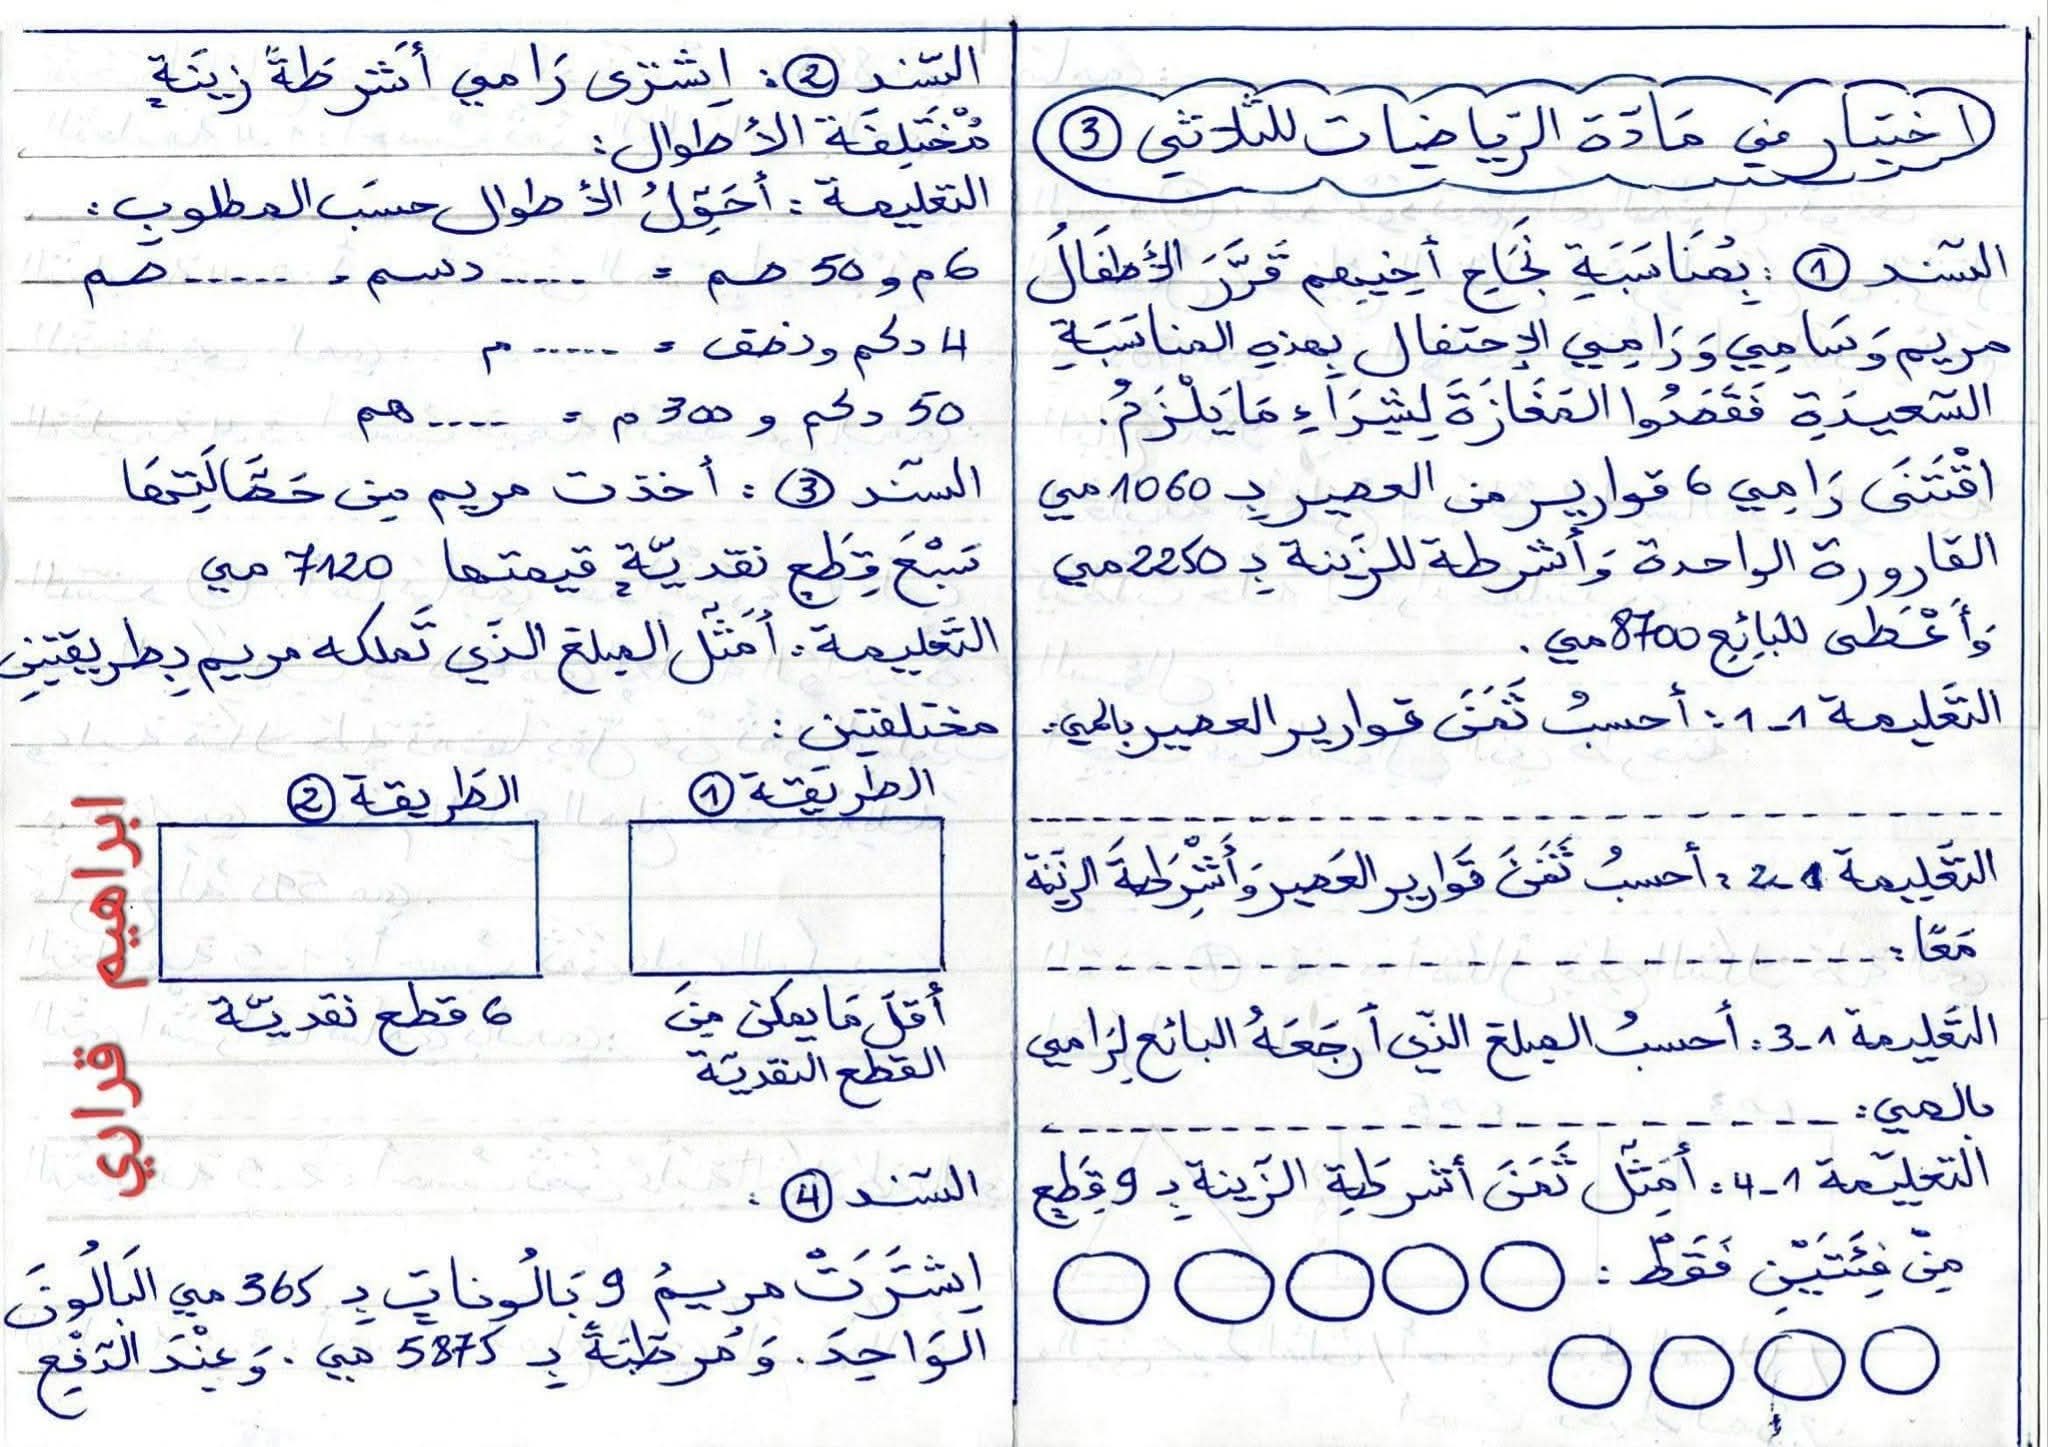 اختبار في مَادّة الرّياضيات للثلاثي ③
السّند ① : بِمُنَاسَبَةِ نَجَاحِ أَخِيهِم قَرَّرَ الأَطْفَالُ
مريم وَسَامِي وَرَامِي الإحتفال بِهذهِ المناسَبَةِ
السّعيدَةِ فَقَصَدُوا المَغَازَةَ لِشِرَاءِ مَا يَلْزَمُ.
اقْتَنَى رَامِي 6 قوارير من العصير بـ 1060 مي
القارورة الواحدة وَأشرطة للزّينة بـ 2250 مي
وَأَعْطى للبَائِعِ 8700 مي .
التّعليمة 1-1 : أحسبُ ثَمَنَ قوارير العصير بالمي:
التّعليمة 1-2 : أحسبُ ثَمَنَ قَوارير العَصير وَأَشْرِطَةَ الزّينة
مَعًا :
التّعليمة 1-3 : أحسبُ المبلغ الذّي أرجَعَهُ البائع لِرَامي
بالمي :
التّعليمة 1-4 : أمَثّل ثَمَنَ أشرطَةِ الزّينة بـ 9 قِطَعٍ
مِنْ فِئَتَيْنِ فَقَطْ :
السّند ② : اِشترى رَامي أشرطَةً زينَةٍ
مُخْتَلِفَة الأطوال :
التعليمة : أحَوّلُ الأطوال حسَب المطلوب :
6 م و 50 صم = ...... دسم = ...... صم
4 دكم ونصف = ...... م
50 دكم و 300 م = .... هم
السّند ③ : أخذت مريم من حَصَّالَتِهَا
سَبْعَ قِطَعٍ نقديّةٍ قيمتها 7120 مي
التّعليمة : أمَثّل المبلغ الذّي تَملكه مريم بِطريقتينِ
مختلفتين :
الطّريقة ①
الطّريقة ②
أقلّ مَا يمكن مِنَ
القطع النّقديّة
6 قطع نقديّة
السّند ④ :
اِشتَرَتْ مريمُ 9 بَالُوناتٍ بِـ 365 مي البَالُونَ
الوَاحِدَ . وَمُرطّبَةً بِـ 5875 مي . وَعِنْدَ الدّفْعِ
ابراهيم قراري